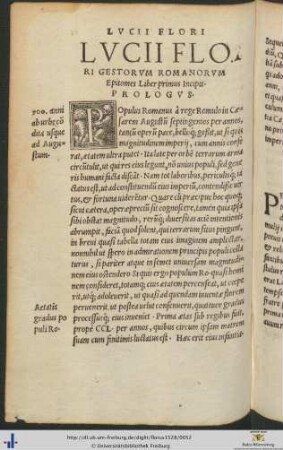 LVCII FLORI
LVCII FLO
RI GESTORVM ROMANORVM
Epitomes Liber primus Incipit
PROLOGVS.
700. anni
ab urbe cō
dita usque
ad Augu
stum.
POpulus Romanus à rege Romulo in Cæ
sarem Augustū septingentos per annos,
tantū operū pace, bellóq; gessit, ut si quis
magnitudinem imperij, cum annis confe
rat, ætatem ultra putet. Ita latè per orbē terrarum arma
circūtulit, ut qui res eius legunt, nō unius populi, sed gene
ris humani facta discāt. Nam tot laboribus, periculisq; ia
ctatus est, ut ad constituendū eius imperiū, contendisse vir
tus, & fortuna uideretur. Quare cū præcipuè hoc quoq;
sicut cætera, operæpreciū sit cognoscere, tamen quia ipsa
sibi obstat magnitudo, rerūq; diuersitas aciē intentionis
abrumpit, faciā quod solent, qui terrarum situs pingunt,
in breui quasi tabella totam eius imaginem amplectar,
nonnihil ut spero in admirationem principis populi colla
turus, si pariter atque in semel uniuersam magnitudi-
nem eius ostendero. Si quis ergo populum Ro. quasi homi
nem consideret, totamq; eius ætatem percenseat, ut coepe
rit, utq; adoleuerit, ut quasi ad quendam iuuentæ florem
peruenerit, ut postea uelut consenuerit, quatuor gradus
processusq; eius inueniet. Prima ætas sub regibus fuit,
propè CCL. per annos, quibus circum ipsam matrem
suam cum finitimis luctatus est. Hæc erit eius infantia.
Aetatis
gradus po
puli Ro.
http://dl.ub.uni-freiburg.de/diglit/florus1528/0012
© Universitätsbibliothek Freiburg